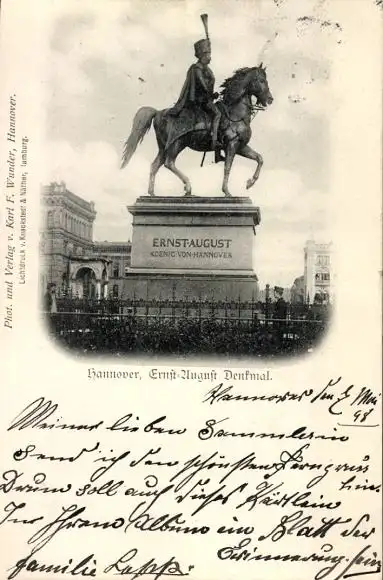 Phot. und Verlag v. Karl F. Wunder, Hannover.
Lichtdruck v. Knackstedt & Näther, Hamburg.
ERNST·AUGUST
KOENIG VON·HANNOVER
Hannover, Ernst-August Denkmal.
Hannover den 2 Mai
98
Meiner lieben Sammlerin
Send ich den schönsten Ferngruss
Drum soll auch dieses Kärtlein hin.
In Ihrem Album ein Blatt der
Erinnerung sein
familie